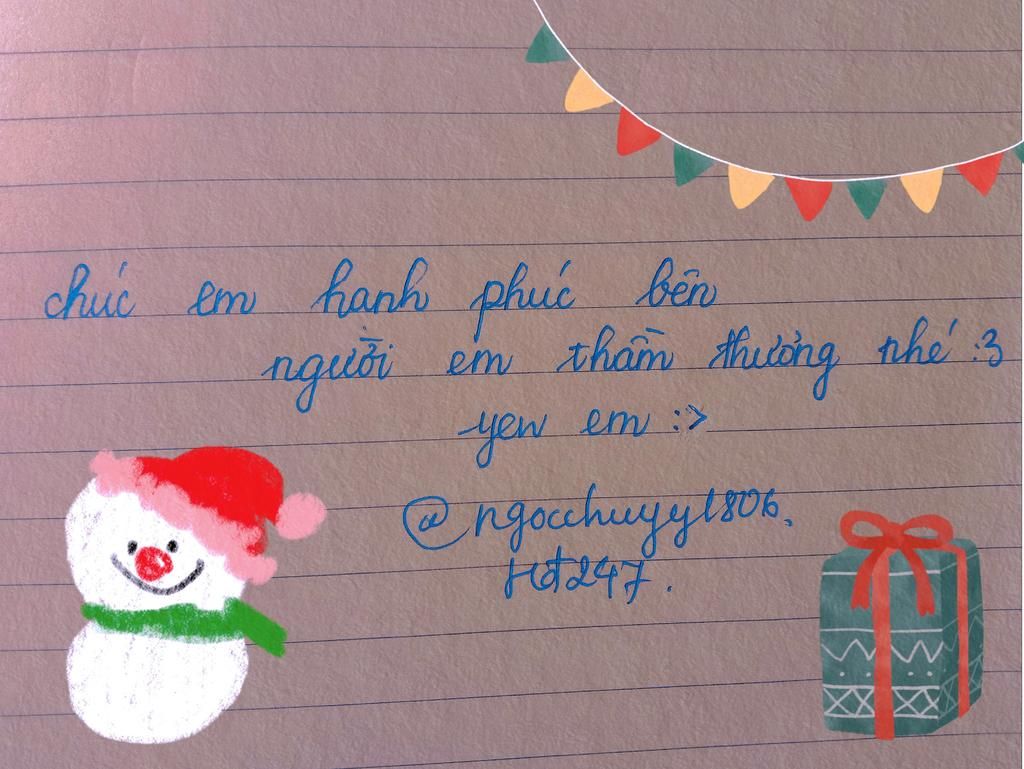 chúc em hanh phúc bên
người em thầm thương nhé :3
yew em :>
@ngocchuyy1806.
Hđ247.